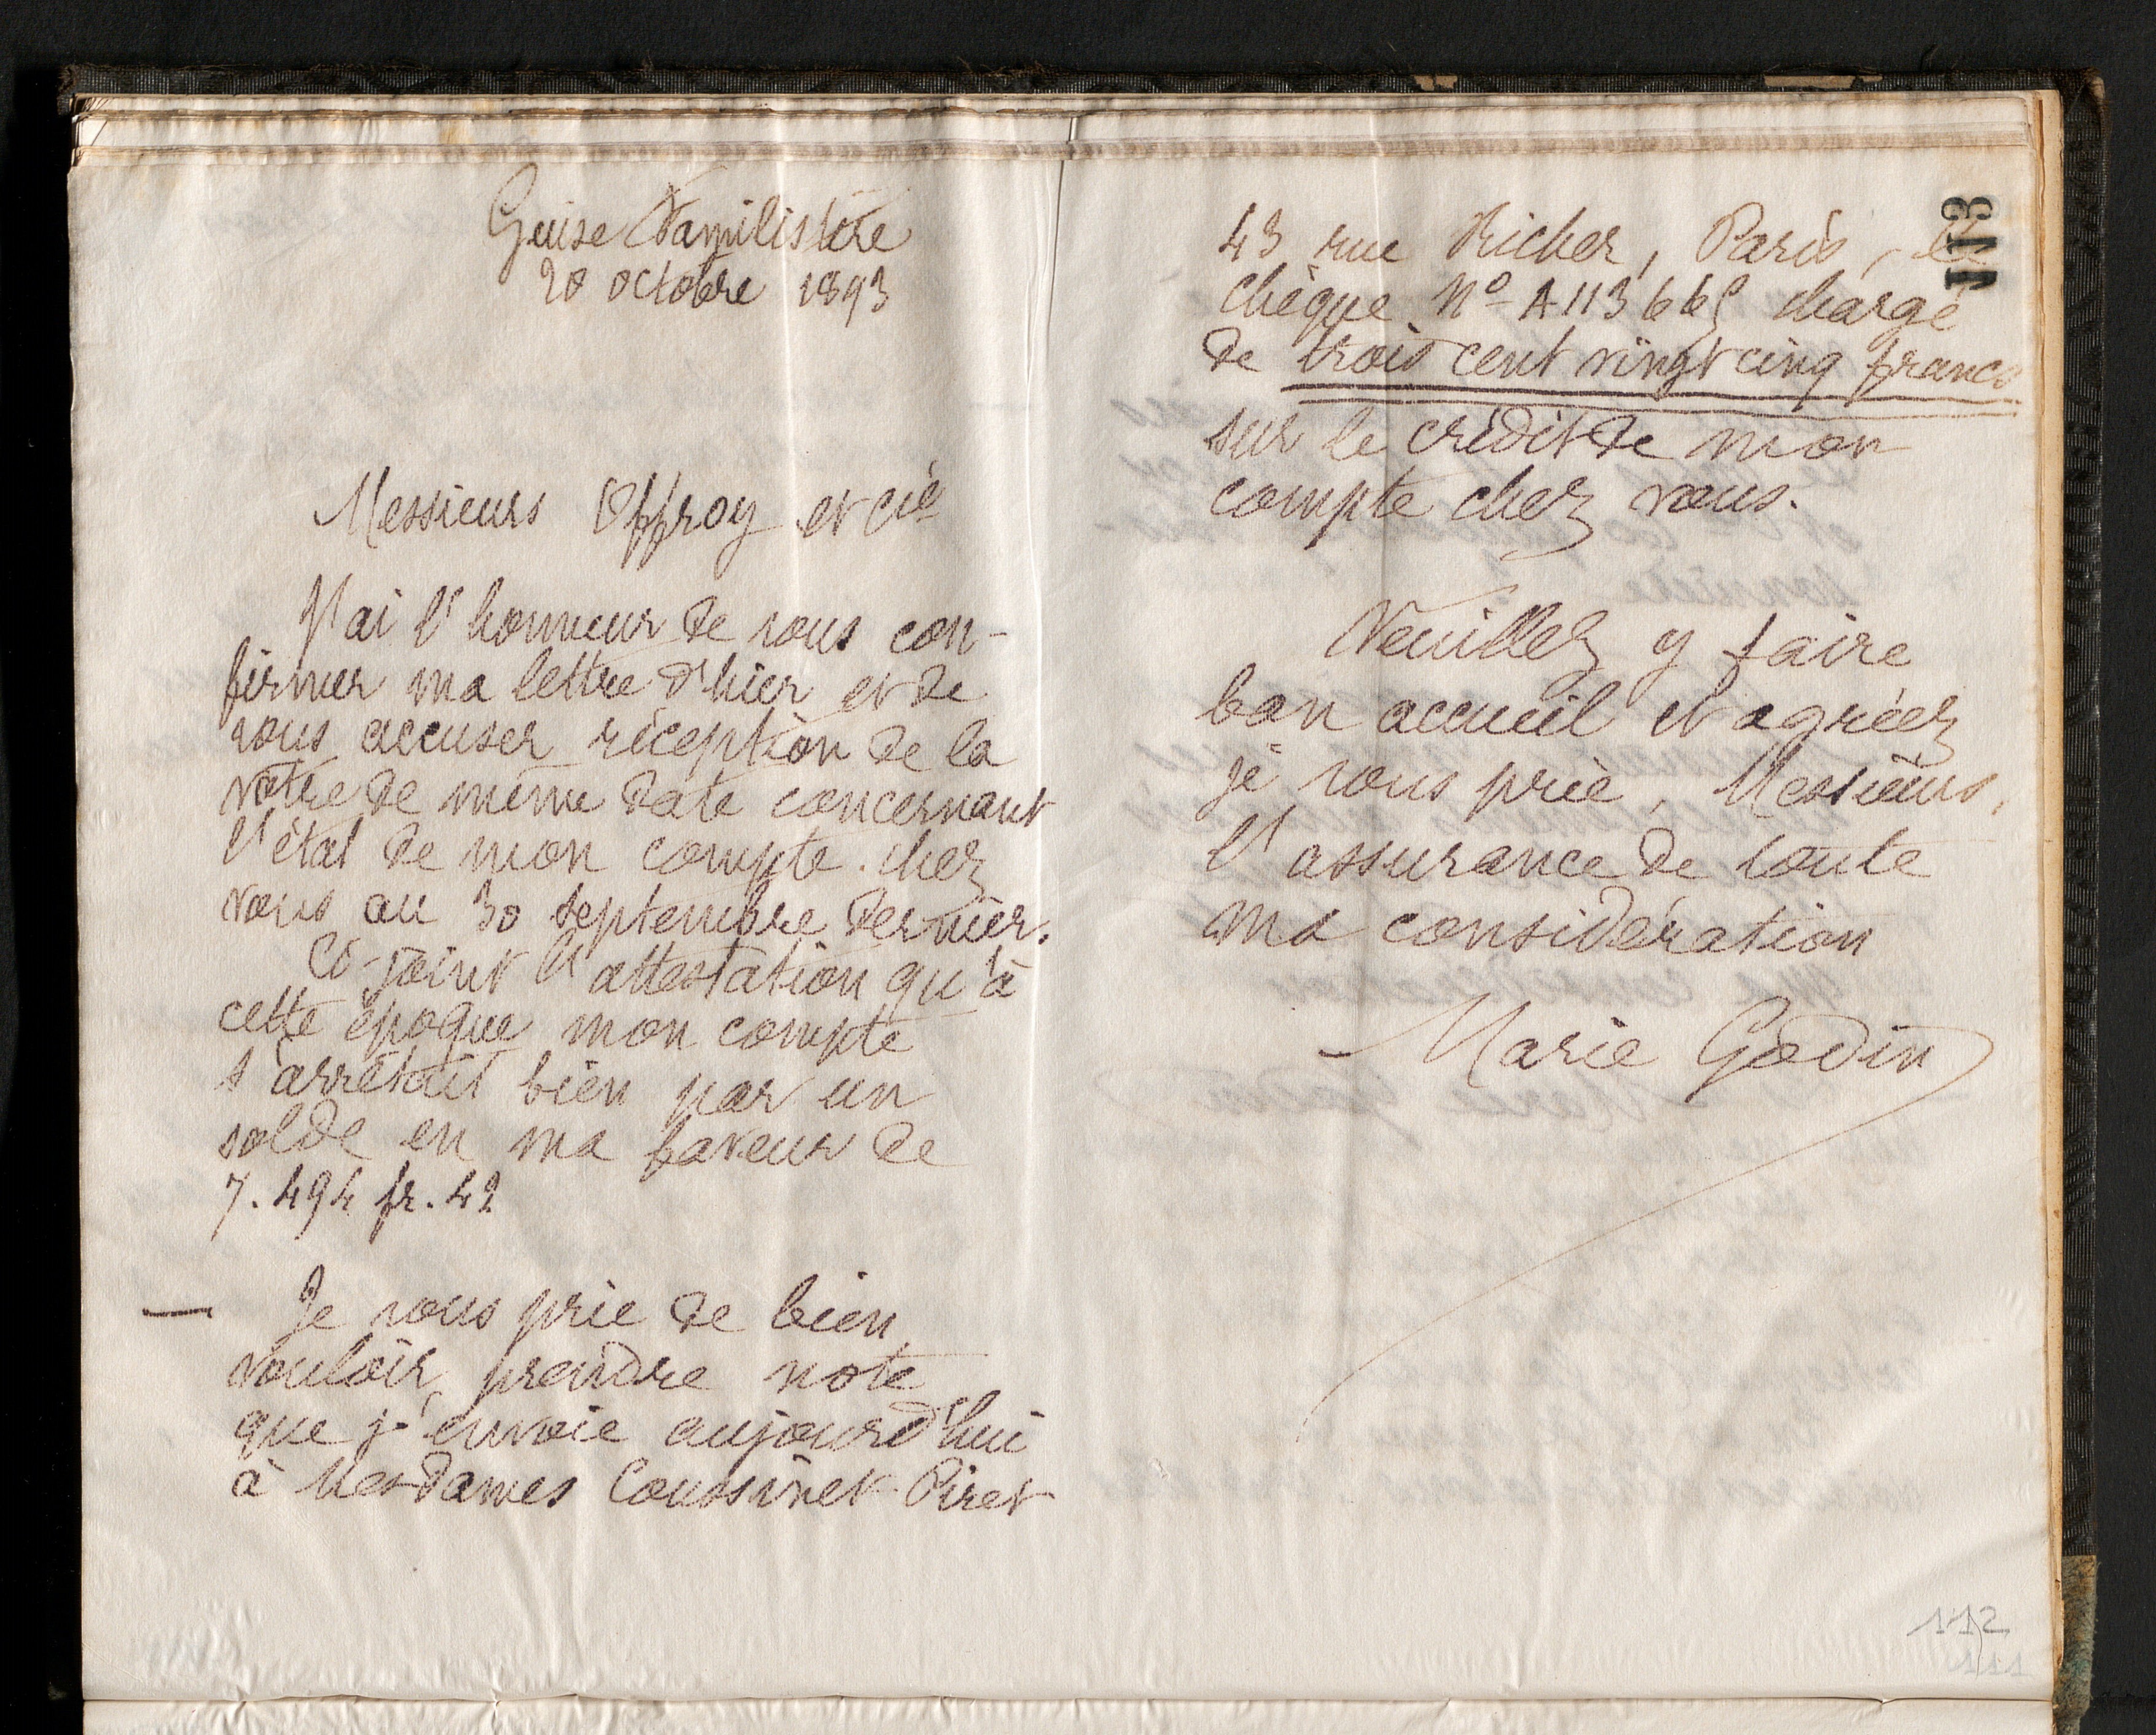 Guise Familistère
20 octobre 1893
Messieurs Offroy et cie
J'ai l'honneur de vous con-
firmer ma lettre d'hier et de
vous accuser réception de la
vôtre de même date concernant
l'état de mon compte chez
vous au 30 septembre dernier.
Ci-joint l'attestation qu'à
cette époque mon compte
s'arrêtait bien par un
solde en ma faveur de
7.494 fr. 42
— Je vous prie de bien
vouloir prendre note
que j'envoie aujourd'hui
à Mesdames Coussinet-Piret
113
43 rue Richer, Paris, le
chèque No A 113 665 chargé
de trois cent vingt cinq francs
sur le crédit de mon
compte chez vous.
Veuillez y faire
bon accueil et agréez
je vous prie, Messieurs,
l'assurance de toute
ma considération
Marie Godin
112
111